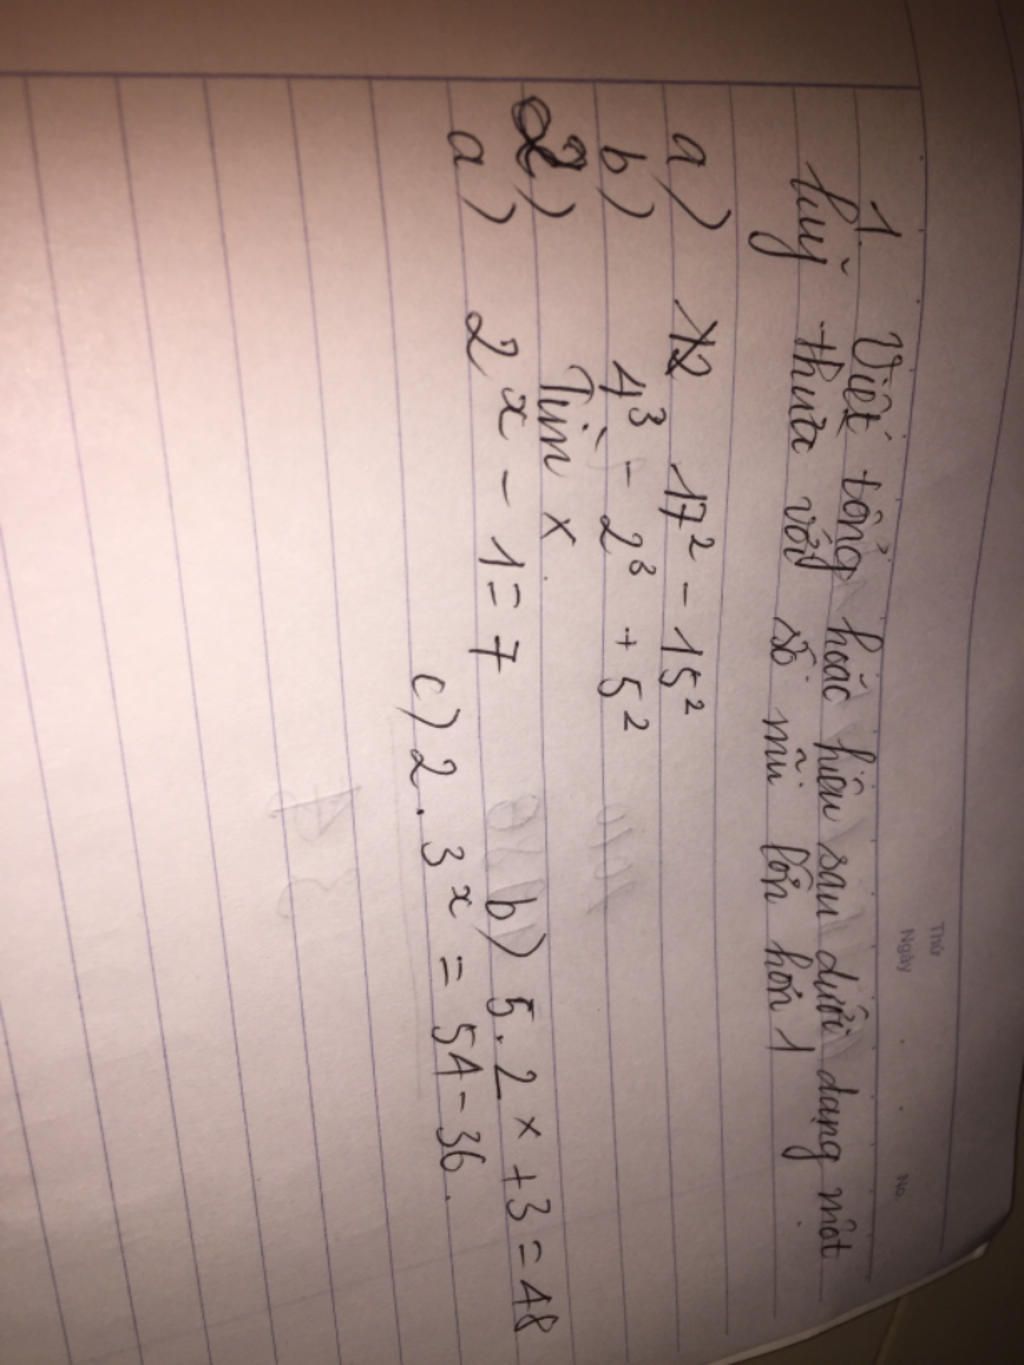 Thứ
Ngày
No.
1. Viết tổng hoặc hiệu sau dưới dạng một
luỹ thừa với số mũ lớn hơn 1
a) 17² - 15²
b) 4³ - 2³ + 5²
2) Tìm x
a) 2ˣ - 1 = 7
b) 5.2ˣ + 3 = 48
c) 2.3ˣ = 54 - 36.